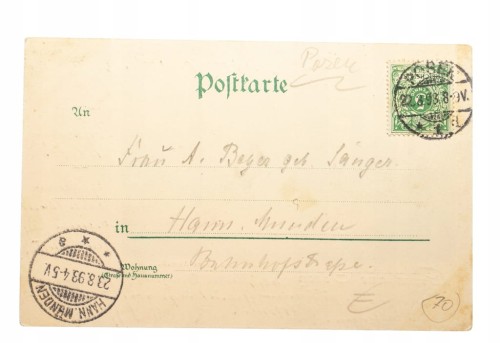 Posen
Postkarte
POSEN
22.8.93.8-9V.
An
Frau A. Beyer geb. Sänger.
in Hann. Münden
Wohnung Bahnhofstraße.
(Straße und Hausnummer)
HANN. MÜNDEN
23.8.93.4-5V.
70